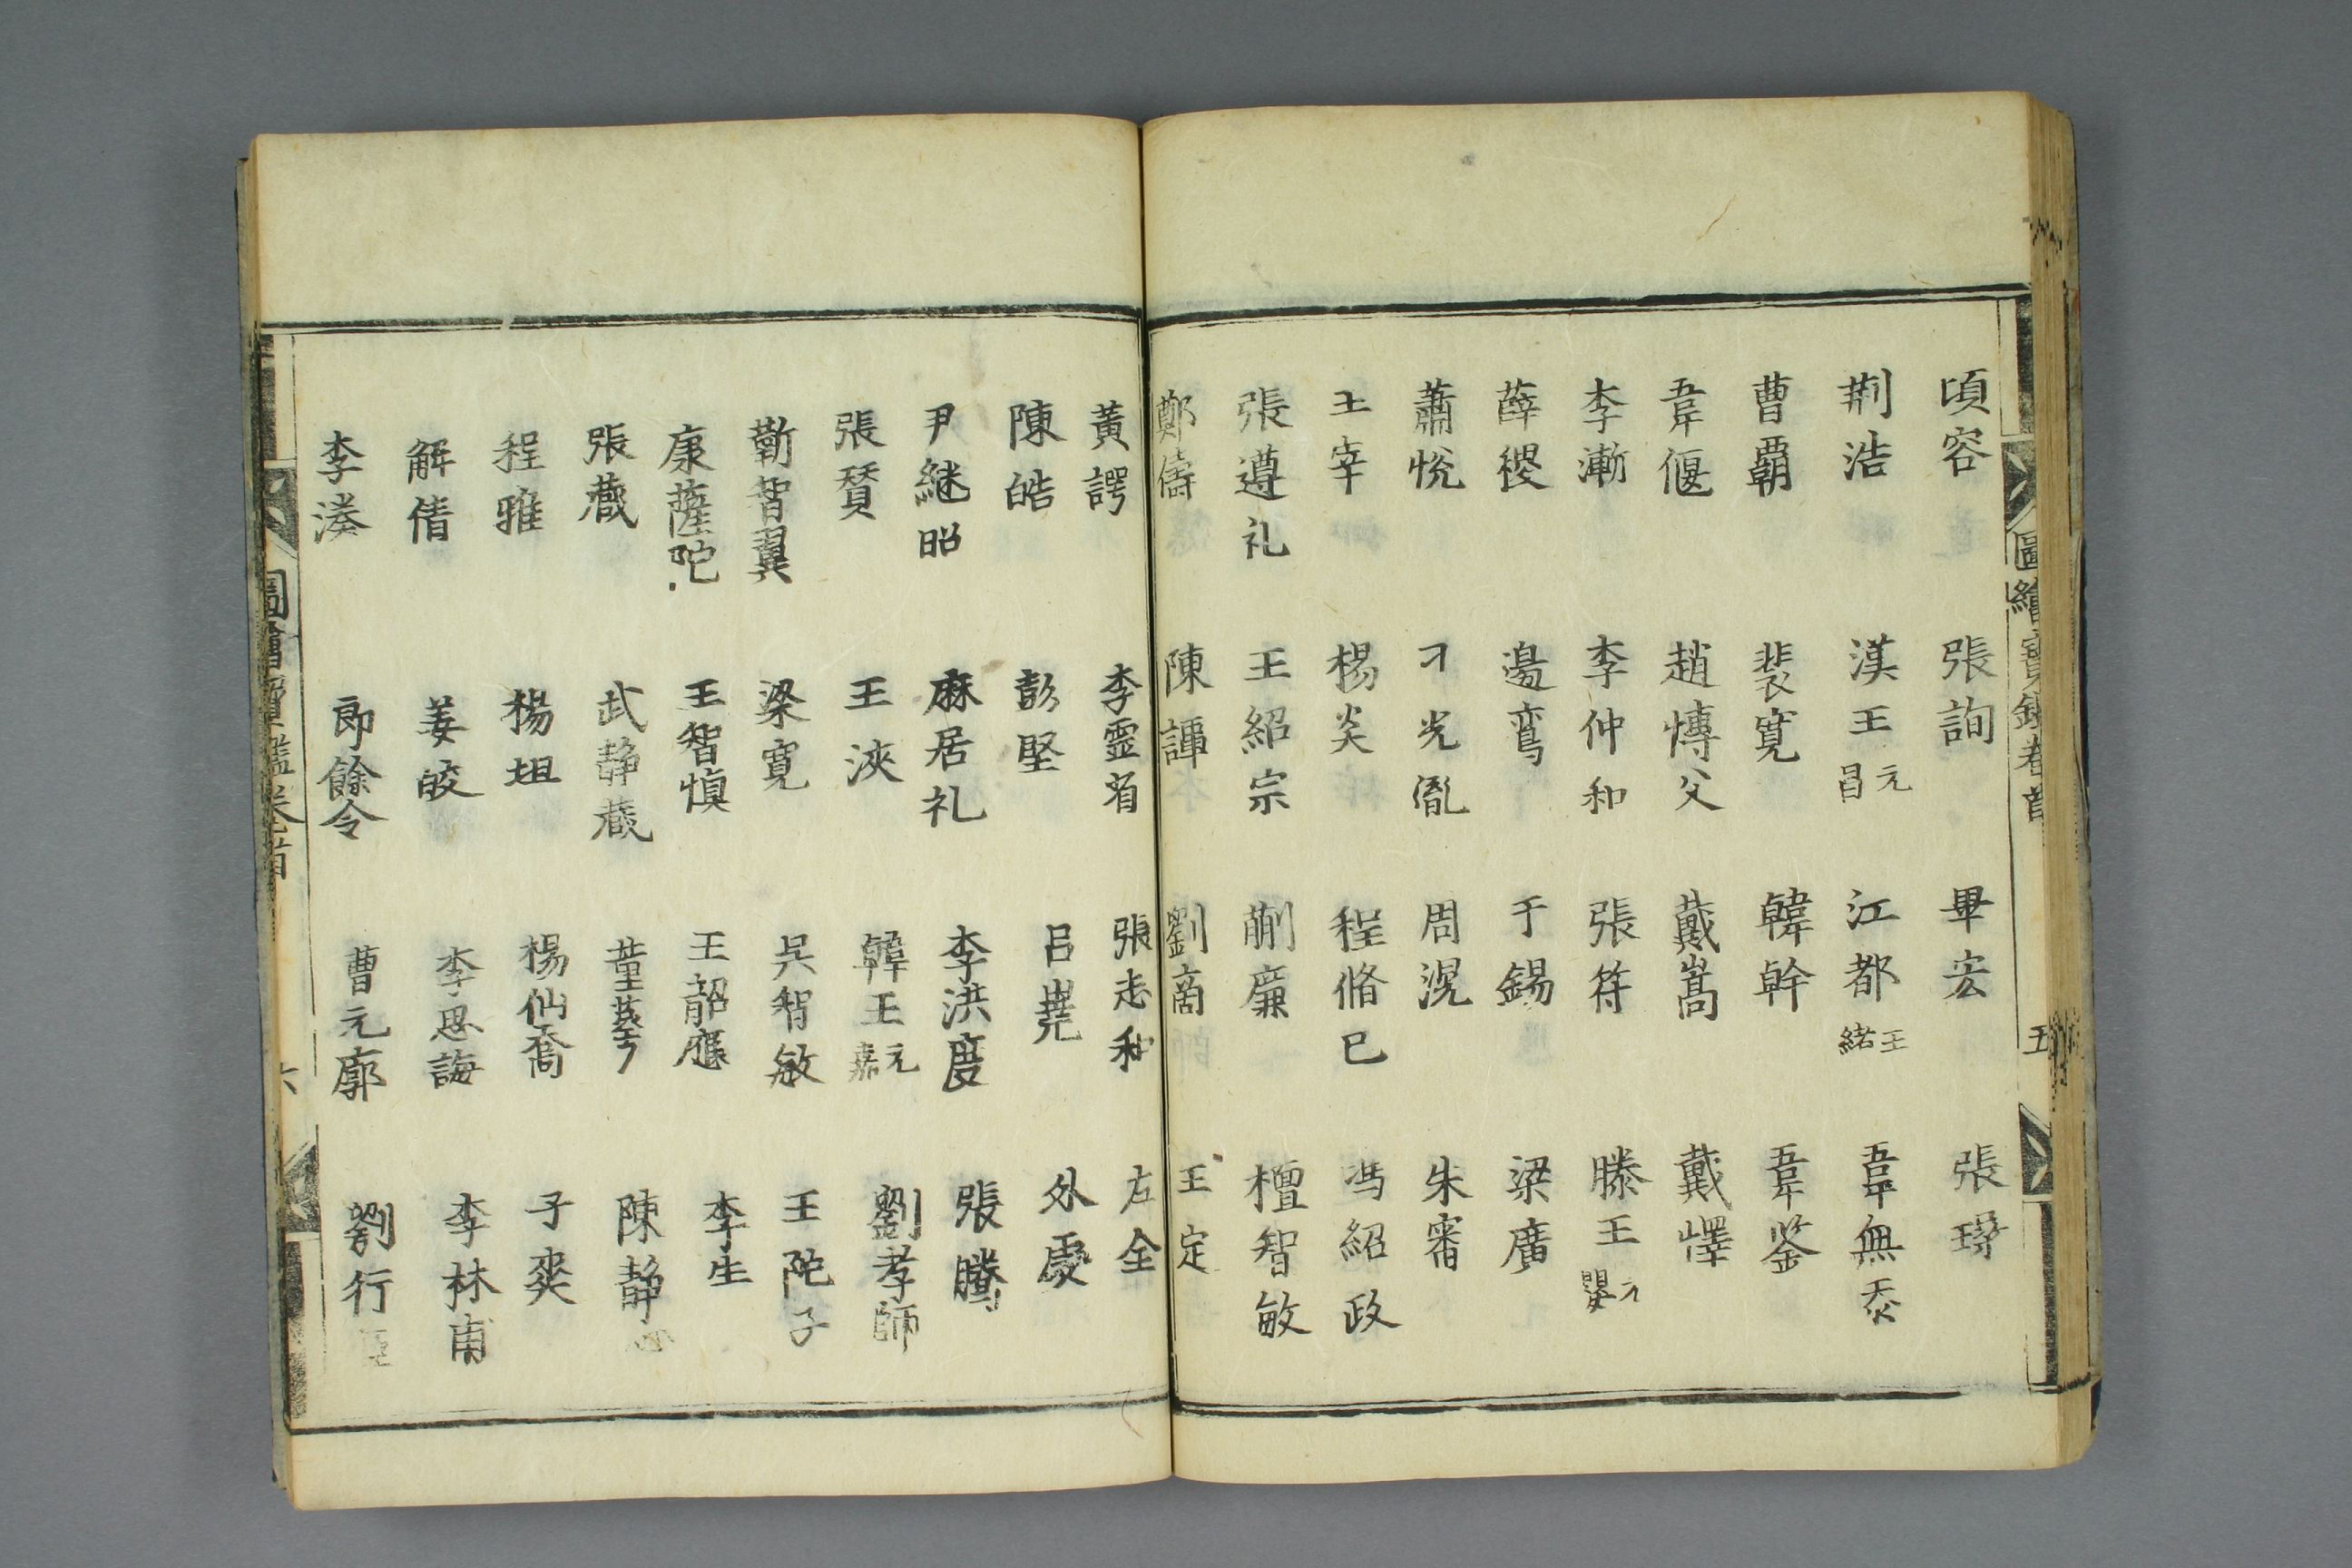 頃容 張詢 畢宏 張璪
荆浩 漢王元昌 江都王緒 韋無忝
曹覇 裴寛 韓幹 韋鉴
韋偃 趙慱父 戴嵩 戴嶧
李漸 李仲和 張符 滕王元嬰
薛稷 邉鸞 于錫 梁廣
蕭悅 刁光胤 周滉 朱審
王宰 楊炎 程脩已 馮紹政
張遵礼 王紹宗 蒯廉 檀智敏
鄭儔 陳譚 劉商 王定
圖繪寶鑑卷首 五
黃諤 李霊省 張志和 左全
陳皓 彭堅 吕嶤 外處
尹継昭 麻居礼 李洪度 張騰
張賛 王浹 韓王元嘉 劉孝師
靳智翼 梁寛 吴智敏 王陀子
康薩陀 王智慎 王韶應 李生
張藏 武静藏 董萼 陳静
程雅 楊坦 楊仙喬 子奭
解倩 姜皎 李思誨 李林甫
李湊 郎餘令 曹元廓 劉行
圖繪寶鑑卷首 六